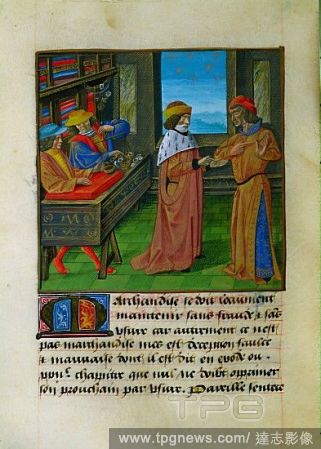 Marchandise se doit loiaument
maintenir sans fraude et sans
usure car autrement ce nest
pas marchandise mes est deception faulce
et mauvaise dont il est dit en exode ou
chapitre que nul ne doibt opprimer
son prouchain par usure. Pareille sentence
TPG
www.tpgnews.com / 達志影像